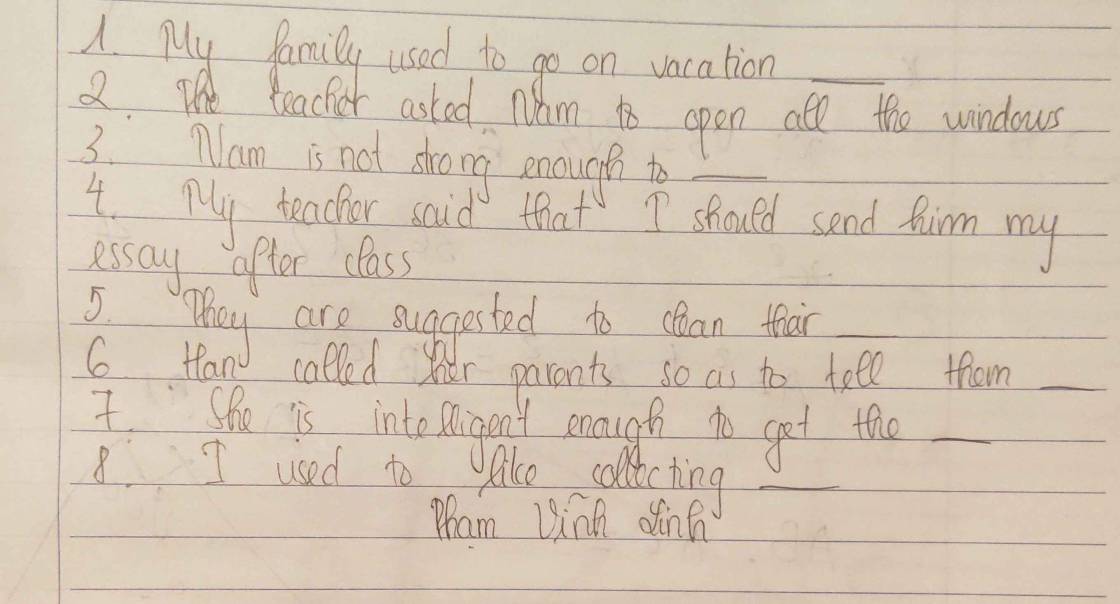 1. My family used to go on vacation ___
2. The teacher asked Nam to open all the windows
3. Nam is not strong enough to ___
4. My teacher said that I should send him my
essay after class
5. They are suggested to clean their ___
6 Hand called her parents so as to tell them ___
7. She is intelligent enough to get the ___
8. I used to like collecting ___
Phạm Vĩnh Linh